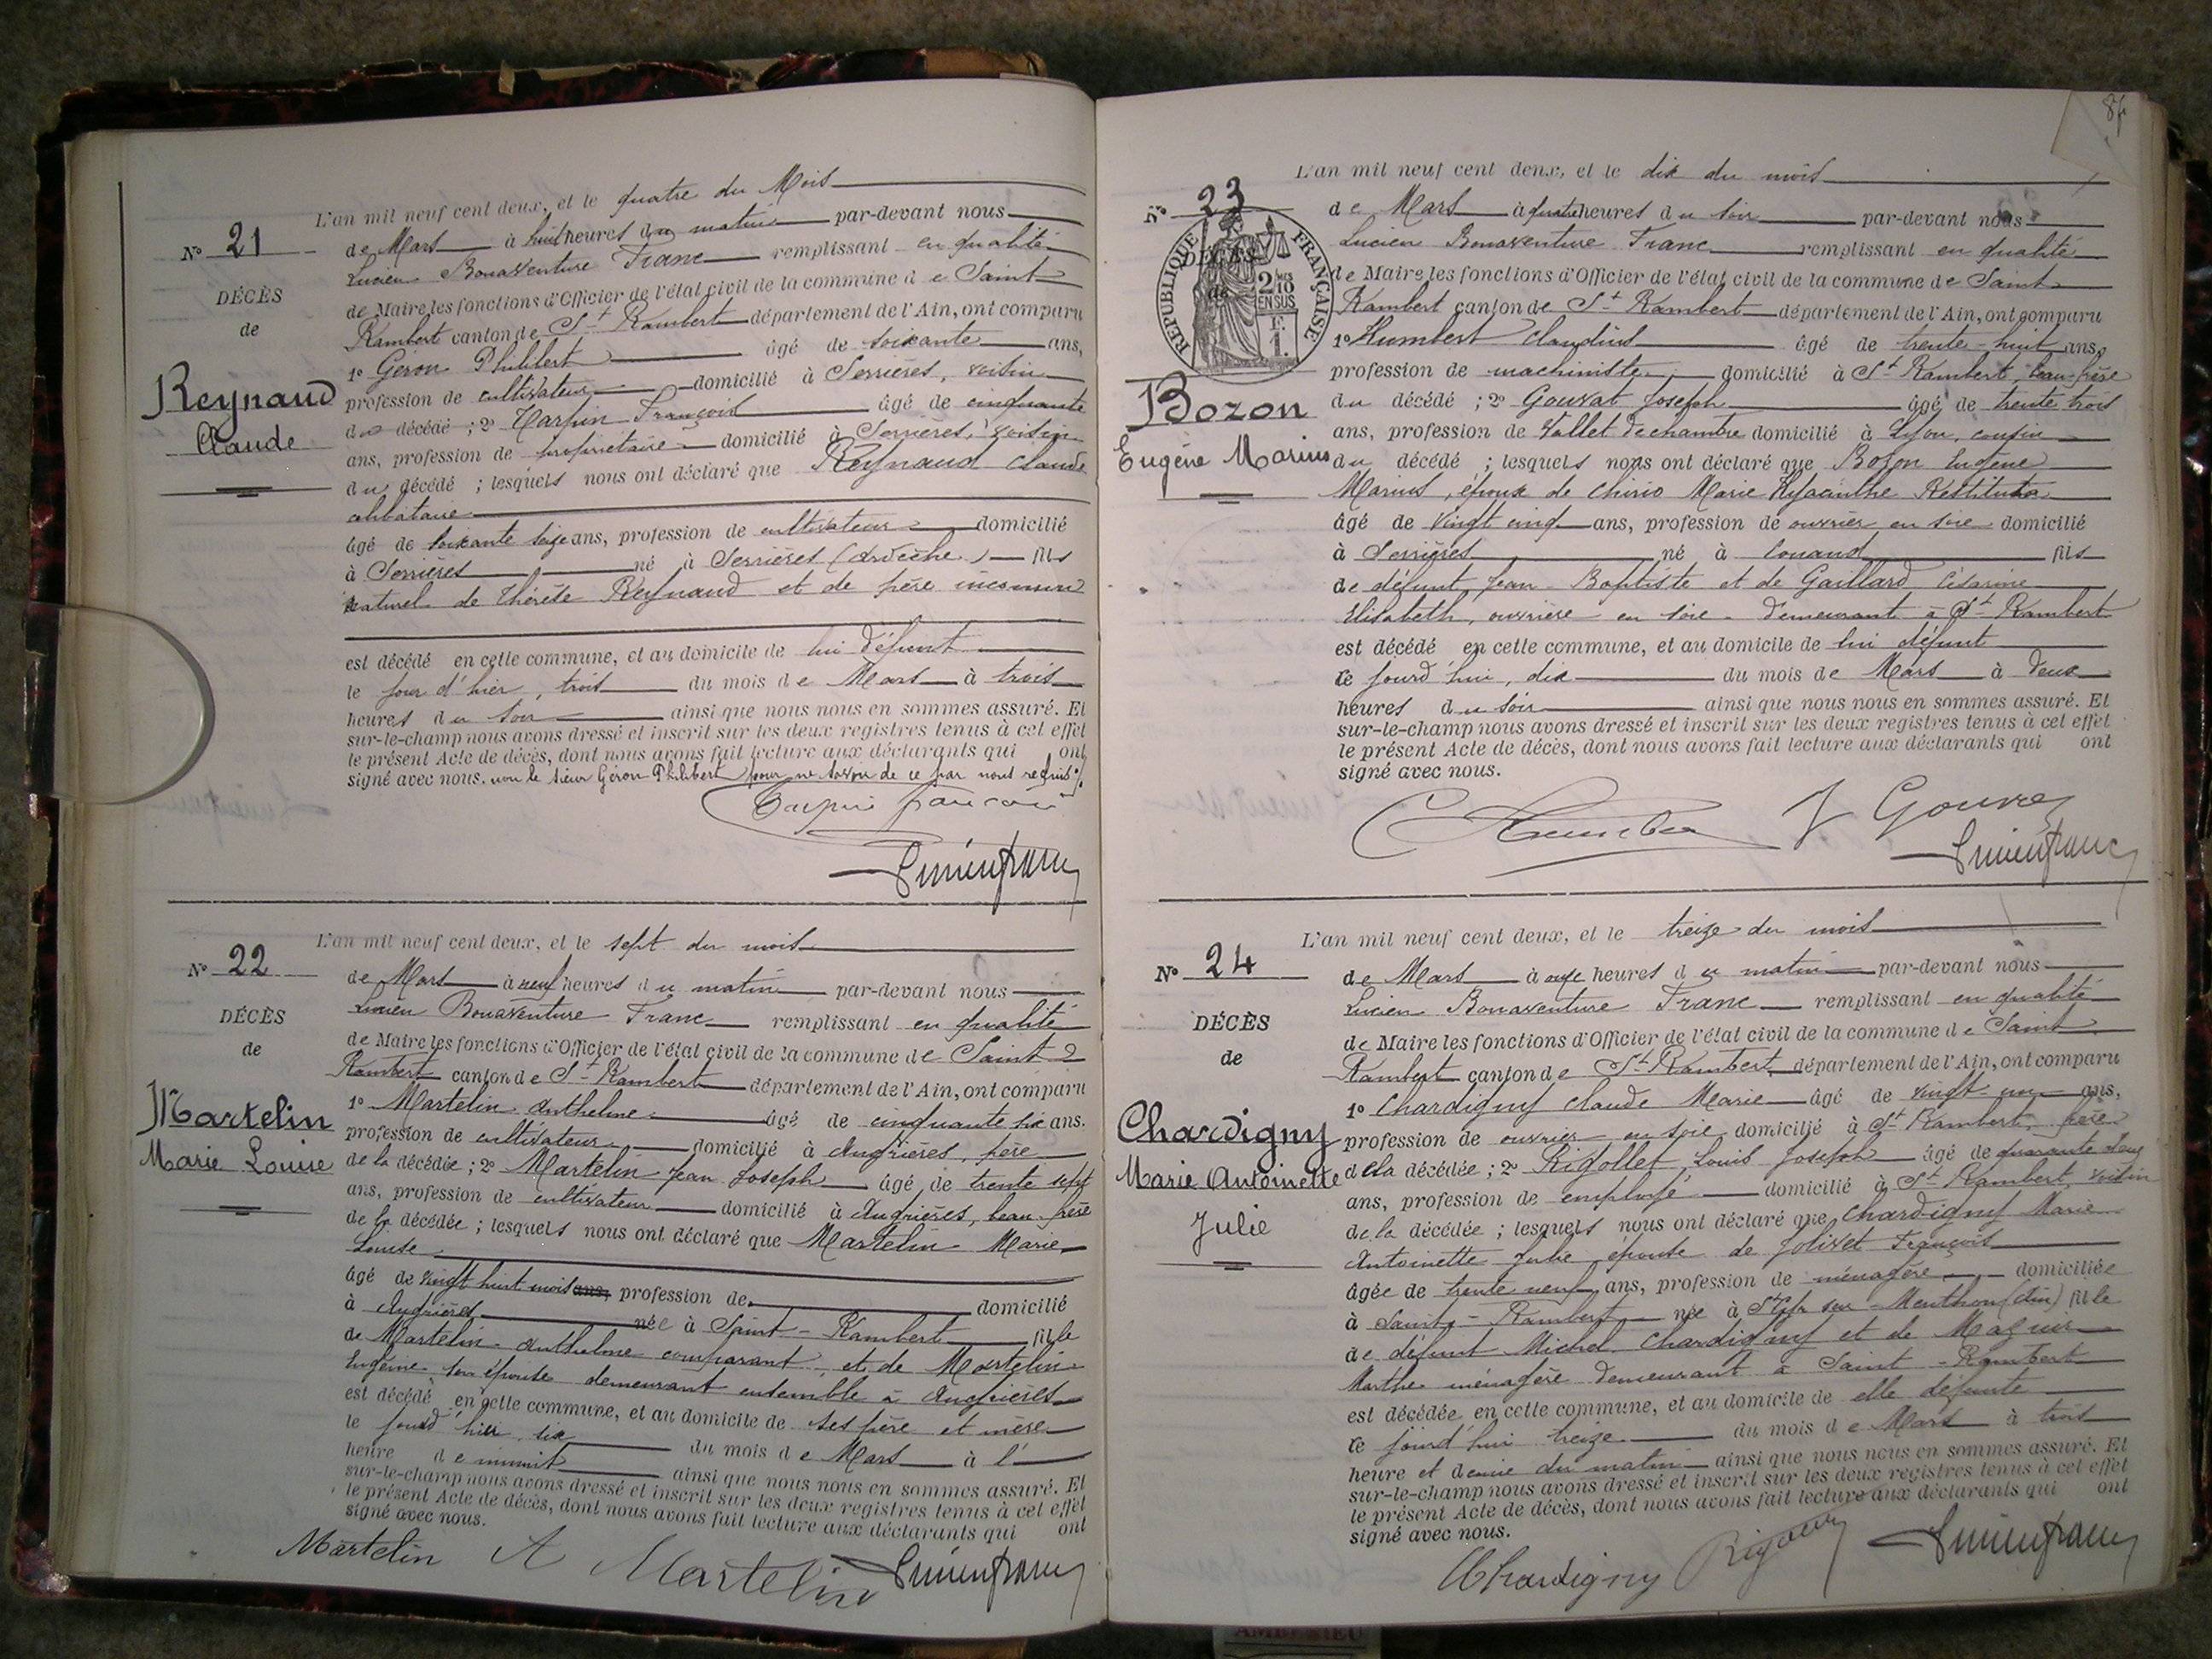 L'an mil neuf cent deux, et le quatre du Mois
N° 21
de Mars à huit heures du matin par-devant nous
Lucien Bonaventure Franc remplissant en qualité
DÉCÈS
de
de Maire les fonctions d'Officier de l'état civil de la commune de Saint
Rambert canton de St Rambert département de l'Ain, ont comparu
1° Géron Philibert âgé de soixante ans,
Reynaud
Claude
profession de cultivateur domicilié à Serrières, voisin
du décédé ; 2° Carpin François âgé de cinquante
ans, profession de propriétaire domicilié à Serrières, voisin
du décédé ; lesquels nous ont déclaré que Reynaud Claude
célibataire
âgé de soixante seize ans, profession de cultivateur domicilié
à Serrières né à Serrières (Ardèche) fils
naturel de Thérèse Reynaud et de père inconnu
est décédé en cette commune, et au domicile de lui défunt
le jour d'hier, trois du mois de Mars à trois
heures du soir ainsi que nous nous en sommes assuré. Et
sur-le-champ nous avons dressé et inscrit sur les deux registres tenus à cet effet
le présent Acte de décès, dont nous avons fait lecture aux déclarants qui ont
signé avec nous. non le sieur Géron Philibert pour ne savoir de ce par nous requis
L'an mil neuf cent deux, et le sept du mois
N° 22
de Mars à neuf heures du matin par-devant nous
DÉCÈS
de
Lucien Bonaventure Franc remplissant en qualité
de Maire les fonctions d'Officier de l'état civil de la commune de Saint
Rambert canton de St Rambert département de l'Ain, ont comparu
1° Martelin Anthelme âgé de cinquante six ans.
Martelin
Marie Louise
profession de cultivateur domicilié à Angrières, père
de la décédée ; 2° Martelin Jean Joseph âgé de trente sept
ans, profession de cultivateur domicilié à Angrières, beau-frère
de la décédée ; lesquels nous ont déclaré que Martelin Marie
Louise
âgé de vingt huit mois ans, profession de domicilié
à Angrières née à Saint-Rambert fille
de Martelin Anthelme comparant et de Martelin
Eugénie son épouse demeurant ensemble à Angrières
est décédé en cette commune, et au domicile de ses père et mère
le jourd'hier six du mois de Mars à l'
heure de minuit ainsi que nous nous en sommes assuré. Et
sur-le-champ nous avons dressé et inscrit sur les deux registres tenus à cet effet
le présent Acte de décès, dont nous avons fait lecture aux déclarants qui ont
signé avec nous.
Martelin A Martelin
84
L'an mil neuf cent deux, et le dix du mois
N° 23
de Mars à quatre heures du soir par-devant nous
Lucien Bonaventure Franc remplissant en qualité
RÉPUBLIQUE FRANÇAISE
2 10 EN SUS
F. 1.
DÉCÈS
de
de Maire les fonctions d'Officier de l'état civil de la commune de Saint
Rambert canton de St Rambert département de l'Ain, ont comparu
1° Humbert Claudius âgé de trente-huit ans,
profession de machiniste domicilié à St Rambert, beau-père
Bozon
Eugène Marius
du décédé ; 2° Gouvat Joseph âgé de trente trois
ans, profession de Vallet de chambre domicilié à Lyon, cousin
du décédé ; lesquels nous ont déclaré que Bozon Eugène
Marius, époux de Chirio Marie Hyacinthe Restituta
âgé de vingt cinq ans, profession de ouvrier en soie domicilié
à Serrières né à Conand fils
de défunt Jean-Baptiste et de Gaillard Césarine
Elisabeth, ouvrière en soie demeurant à St Rambert
est décédé en cette commune, et au domicile de lui défunt
ce jourd'hui, dix du mois de Mars à deux
heures du soir ainsi que nous nous en sommes assuré. Et
sur-le-champ nous avons dressé et inscrit sur les deux registres tenus à cet effet
le présent Acte de décès, dont nous avons fait lecture aux déclarants qui ont
signé avec nous.
L'an mil neuf cent deux, et le treize du mois
N° 24
de Mars à onze heures du matin par-devant nous
Lucien Bonaventure Franc remplissant en qualité
DÉCÈS
de
de Maire les fonctions d'Officier de l'état civil de la commune de Saint
Rambert canton de St Rambert département de l'Ain, ont comparu
1° Chardigny Claude Marie âgé de vingt-un ans,
Chardigny
Marie Antoinette
Julie
profession de ouvrier en soie domicilié à St Rambert, frère
de la décédée ; 2° Rigollet Louis Joseph âgé de quarante deux
ans, profession de employé domicilié à St Rambert, voisin
de la décédée ; lesquels nous ont déclaré que Chardigny Marie
Antoinette Julie épouse de Jolivet François
âgée de trente neuf ans, profession de ménagère domiciliée
à Saint-Rambert née à St Cyr sur Menthon (Ain) fille
de défunt Michel Chardigny et de
Marthe ménagère demeurant à Saint-Rambert
est décédée en cette commune, et au domicile de elle défunte
ce jourd'hui treize du mois de Mars à trois
heure et demie du matin ainsi que nous nous en sommes assuré. Et
sur-le-champ nous avons dressé et inscrit sur les deux registres tenus à cet effet
le présent Acte de décès, dont nous avons fait lecture aux déclarants qui ont
signé avec nous.
Chardigny